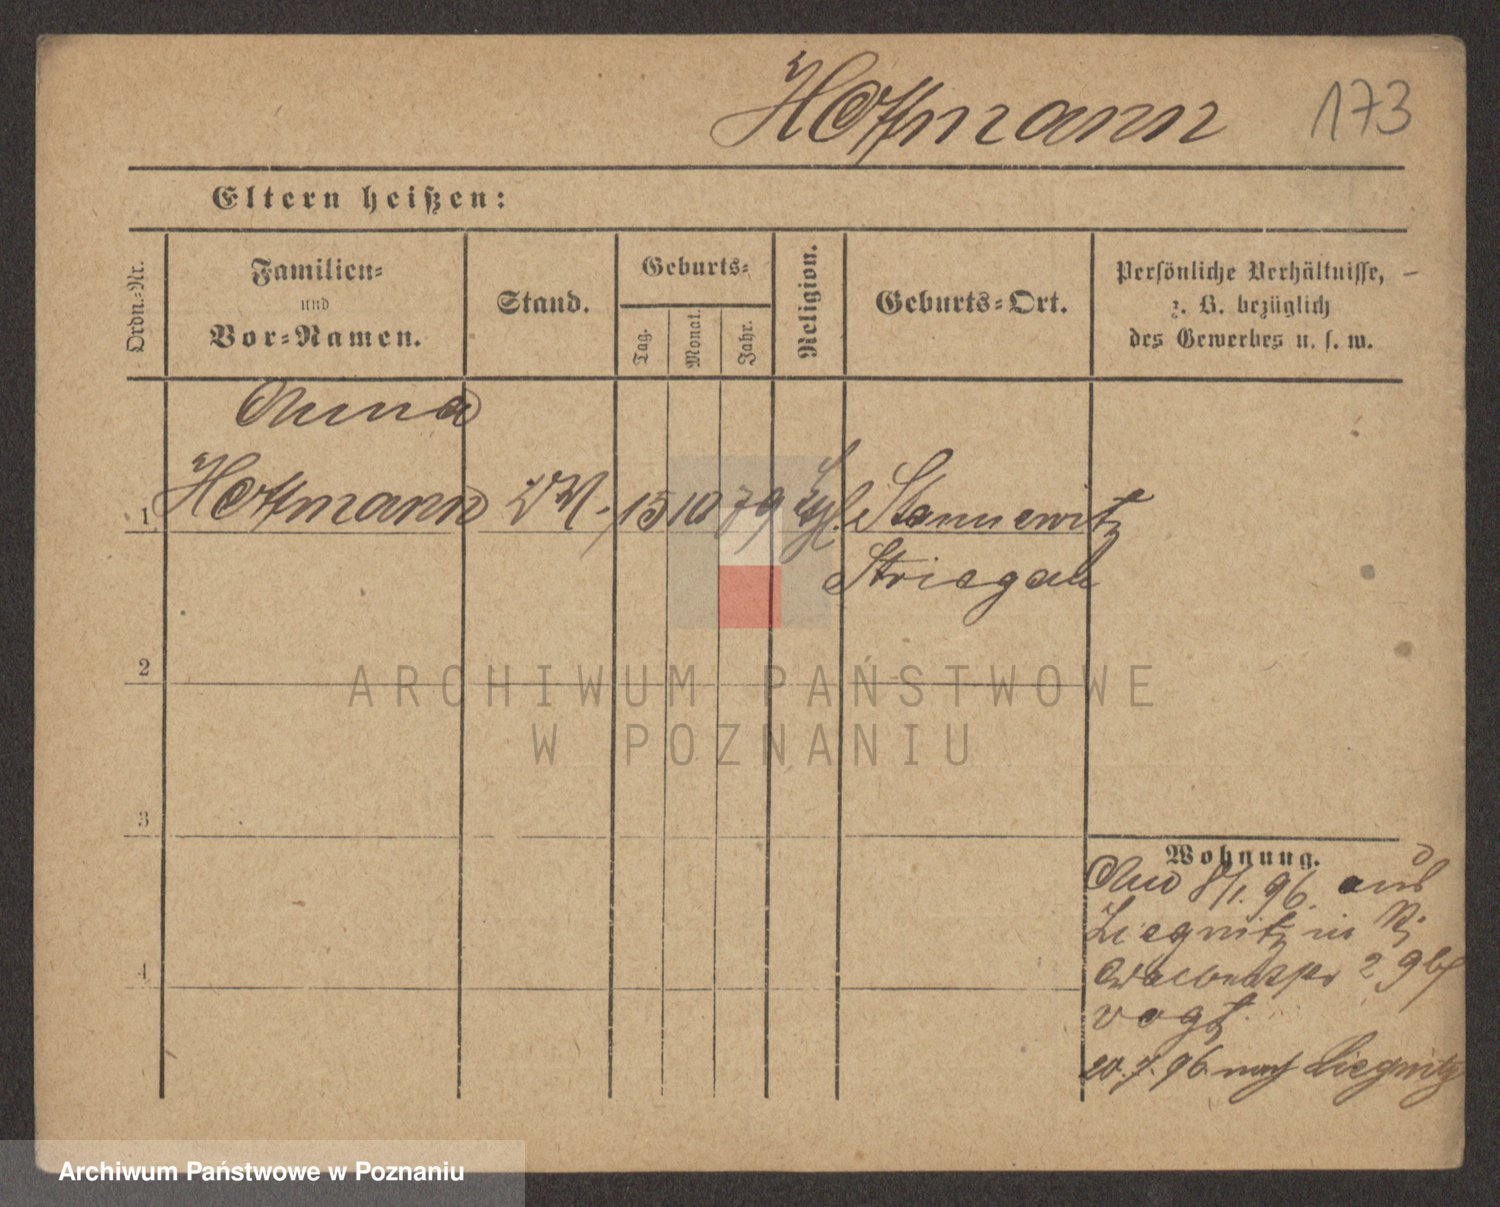 Hoffmann 173
Eltern heißen:
Ordn.-Nr.
Familien-
und
Vor-Namen.
Stand.
Geburts-
Tag.
Monat.
Jahr.
Religion.
Geburts-Ort.
Persönliche Verhältnisse,
z. B. bezüglich
des Gewerbes u. s. w.
Anna
1 Hoffmann 15 10 79 Stannewitz
Striegau
2
3
4
ARCHIWUM PAŃSTWOWE
W POZNANIU
Wohnung.
8/1. 96. aus
Liegnitz in
2
Vogt
20.7.96 nach Liegnitz
Archiwum Państwowe w Poznaniu